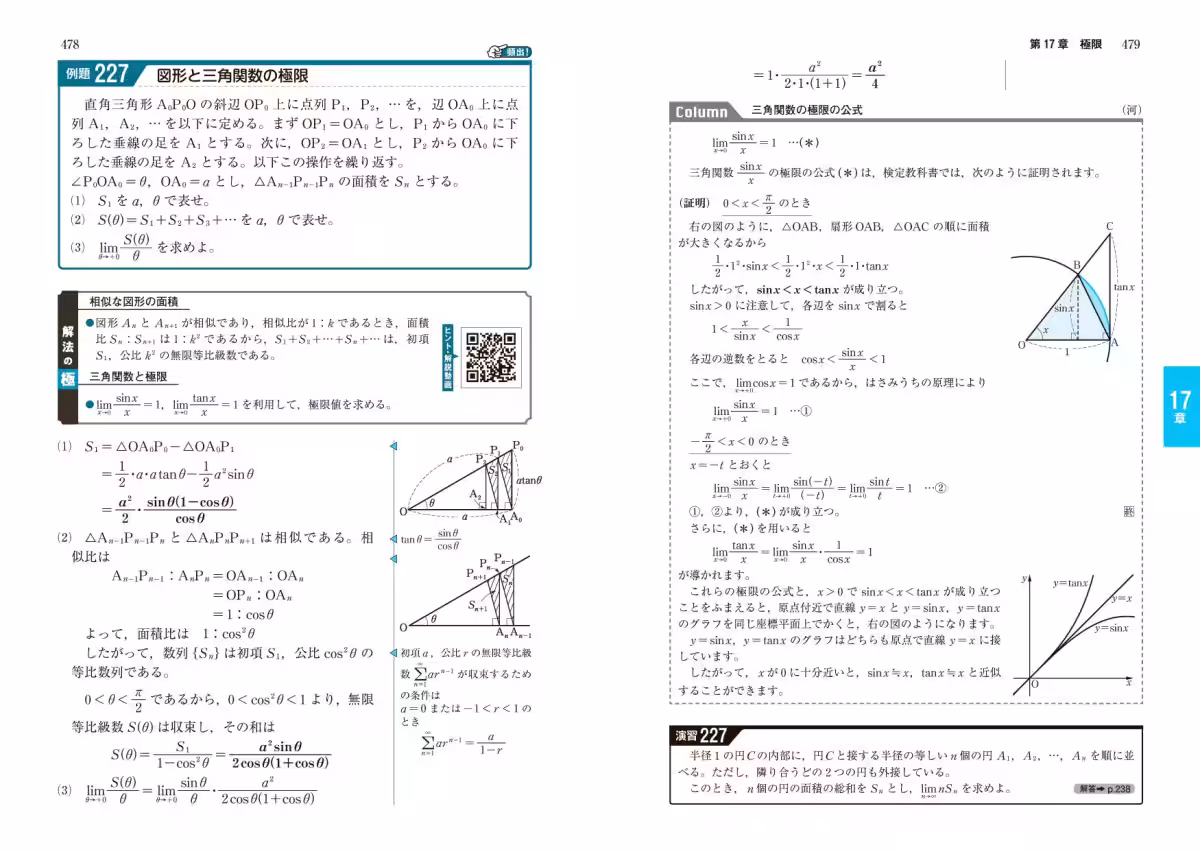 478
頻出!
例題 227 図形と三角関数の極限
直角三角形 A₀P₀O の斜辺 OP₀ 上に点列 P₁, P₂, … を, 辺 OA₀ 上に点
列 A₁, A₂, … を以下に定める。まず OP₁=OA₀ とし, P₁ から OA₀ に下
ろした垂線の足を A₁ とする。次に, OP₂=OA₁ とし, P₂ から OA₀ に下
ろした垂線の足を A₂ とする。以下この操作を繰り返す。
∠P₀OA₀=θ, OA₀=a とし, △Aₙ₋₁Pₙ₋₁Pₙ の面積を Sₙ とする。
(1) S₁ を a, θ で表せ。
(2) S(θ)=S₁+S₂+S₃+… を a, θ で表せ。
(3) lim_{θ→+0} S(θ)/θ を求めよ。
解法の極
相似な図形の面積
●図形 Aₙ と Aₙ₊₁ が相似であり, 相似比が 1:k であるとき, 面積
比 Sₙ:Sₙ₊₁ は 1:k² であるから, S₁+S₂+…+Sₙ+… は, 初項
S₁, 公比 k² の無限等比級数である。
三角関数と極限
●lim_{x→0} sinx/x =1, lim_{x→0} tanx/x =1 を利用して, 極限値を求める。
ヒント・解説動画
(1) S₁=△OA₀P₀−△OA₀P₁
=1/2・a・a tanθ−1/2 a² sinθ
=a²/2・sinθ(1−cosθ)/cosθ
(2) △Aₙ₋₁Pₙ₋₁Pₙ と △AₙPₙPₙ₊₁ は相似である。相
似比は
Aₙ₋₁Pₙ₋₁:AₙPₙ=OAₙ₋₁:OAₙ
=OPₙ:OAₙ
=1:cosθ
よって, 面積比は 1:cos²θ
したがって, 数列 {Sₙ} は初項 S₁, 公比 cos²θ の
等比数列である。
0<θ<π/2 であるから, 0<cos²θ<1 より, 無限
等比級数 S(θ) は収束し, その和は
S(θ)=S₁/(1−cos²θ)=a² sinθ/(2cosθ(1+cosθ))
(3) lim_{θ→+0} S(θ)/θ=lim_{θ→+0} sinθ/θ・a²/(2cosθ(1+cosθ))
a P₂ P₁ P₀ S₂ S₁ a tanθ A₂ θ O a A₁ A₀
tanθ=sinθ/cosθ
Pₙ₊₁ Pₙ Pₙ₋₁ Sₙ Sₙ₊₁ θ O Aₙ Aₙ₋₁
初項 a, 公比 r の無限等比級
数 Σ_{n=1}^{∞} arⁿ⁻¹ が収束するため
の条件は
a=0 または −1<r<1 の
とき
Σ_{n=1}^{∞} arⁿ⁻¹=a/(1−r)
第17章 極限 479
=1・a²/(2・1・(1+1))=a²/4
Column 三角関数の極限の公式 (河)
lim_{x→0} sinx/x=1 …(*)
三角関数 sinx/x の極限の公式(*)は, 検定教科書では, 次のように証明されます。
(証明) 0<x<π/2 のとき
右の図のように, △OAB, 扇形 OAB, △OAC の順に面積
が大きくなるから
1/2・1²・sinx<1/2・1²・x<1/2・1・tanx
したがって, sinx<x<tanx が成り立つ。
sinx>0 に注意して, 各辺を sinx で割ると
1<x/sinx<1/cosx
各辺の逆数をとると cosx<sinx/x<1
ここで, lim_{x→+0} cosx=1 であるから, はさみうちの原理により
lim_{x→+0} sinx/x=1 …①
C B tanx sinx x O 1 A
−π/2<x<0 のとき
x=−t とおくと
lim_{x→−0} sinx/x=lim_{t→+0} sin(−t)/(−t)=lim_{t→+0} sint/t=1 …②
①, ②より, (*)が成り立つ。 終
さらに, (*)を用いると
lim_{x→0} tanx/x=lim_{x→0} sinx/x・1/cosx=1
が導かれます。
これらの極限の公式と, x>0 で sinx<x<tanx が成り立つ
ことをふまえると, 原点付近で直線 y=x と y=sinx, y=tanx
のグラフを同じ座標平面上でかくと, 右の図のようになります。
y=sinx, y=tanx のグラフはどちらも原点で直線 y=x に接
しています。
したがって, x が 0 に十分近いと, sinx≒x, tanx≒x と近似
することができます。
y y=tanx y=x y=sinx O x
17章
演習 227
半径 1 の円 C の内部に, 円 C と接する半径の等しい n 個の円 A₁, A₂, …, Aₙ を順に並
べる。ただし, 隣り合うどの 2 つの円も外接している。
このとき, n 個の円の面積の総和を Sₙ とし, lim_{n→∞} nSₙ を求めよ。
解答➡ p.238